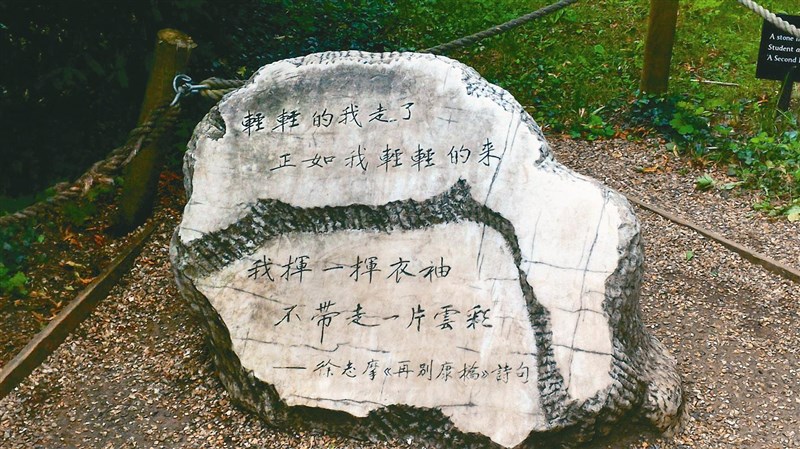 輕輕的我走了
正如我輕輕的来
我揮一揮衣袖
不带走一片雲彩
——徐志摩《再别康橋》詩句
A stone
Student
'A Second